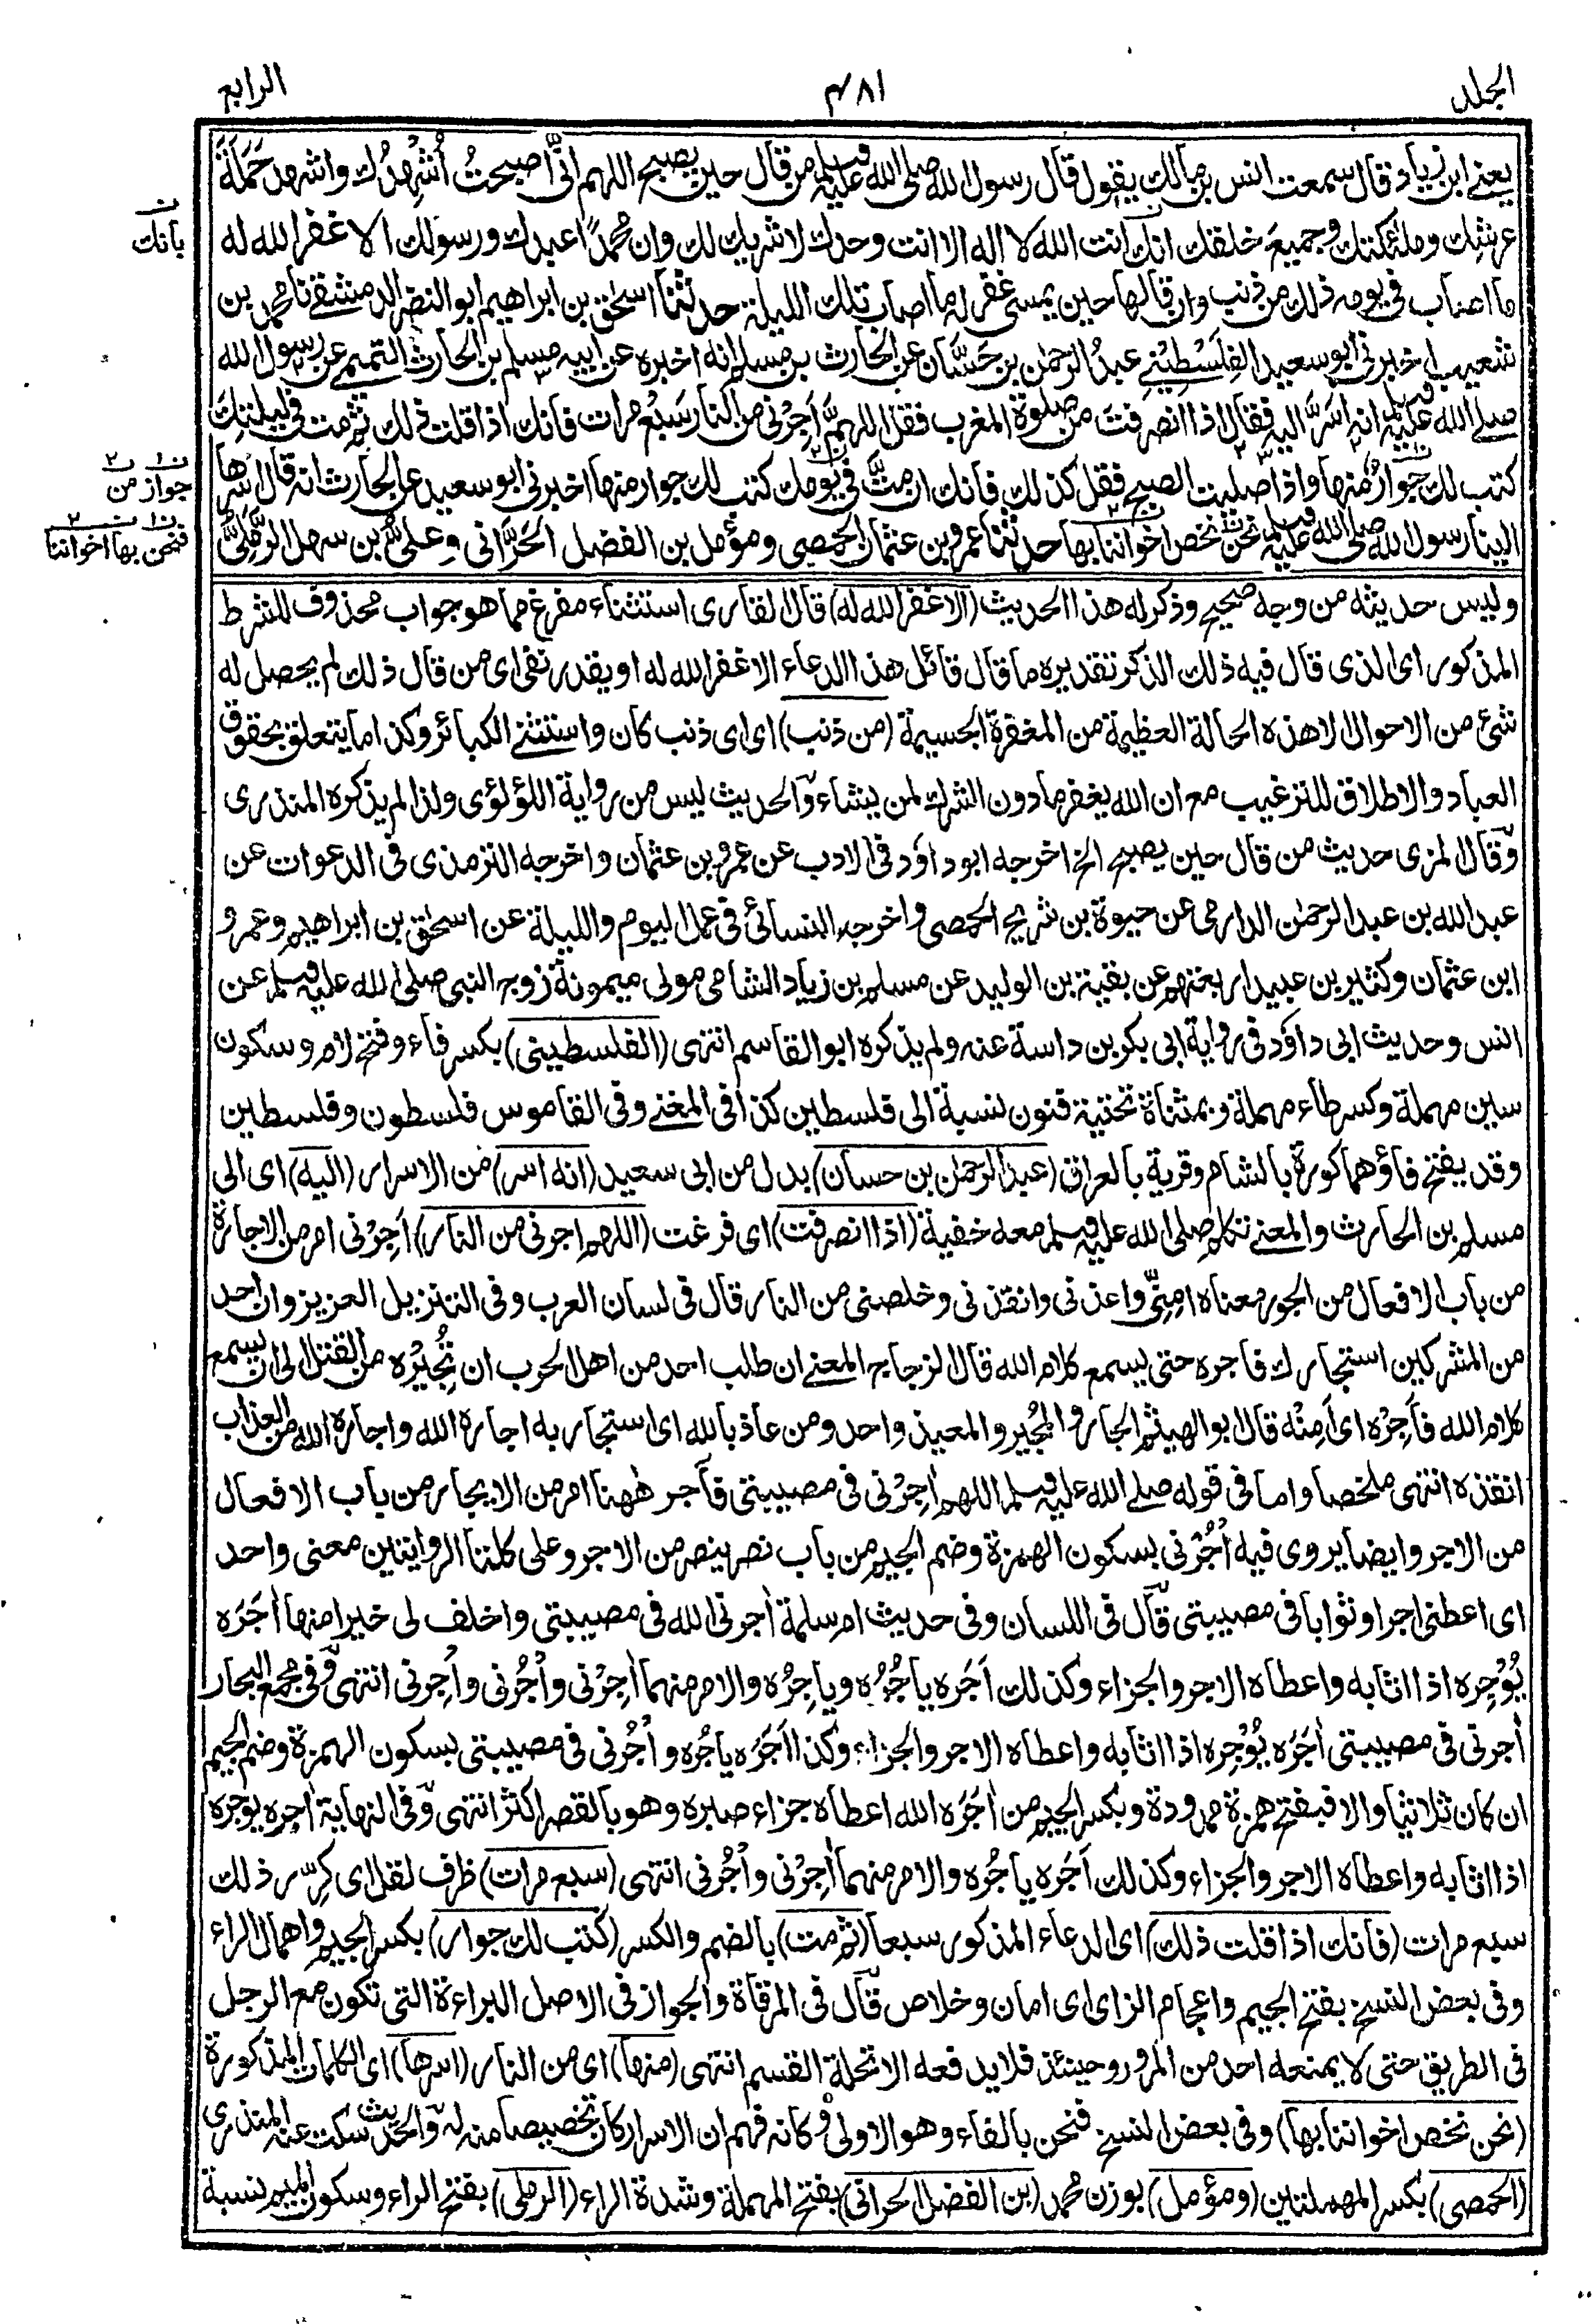 الجلد
٤٨١
الرابع
يعنى ابن زياد قال سمعت انس بن مالك يقول قال رسول الله صلى الله عليه وسلم من قال حين يصبح اللهم انّى اصبحتُ اُشْهِدُك واشهد حَمَلَةَ
عرشِك وملئكتك وجميعَ خلقك انك انت الله لا اله الا انت وحدك لا شريك لك وان محمدًا عبدك ورسولك الا غفر الله له
ما اصاب فى يومه ذلك من ذنب وان قالها حين يمسى غفر له ما اصاب تلك الليلة حدثنا اسحٰق بن ابراهيم ابو النضر الدمشقى نا محمد بن
شعيب اخبرنى ابو سعيد الفِلَسْطِيْنى عبدُ الرحمٰن بن حَسَّان عن الحارث بن مسلم انه اخبره عن ابيه مسلم بن الحارث التميمى عن رسول الله
صلى الله عليه وسلم انه اَسَرَّ اليه فقال اذا انصرفتَ من صلوة المغرب فقل اللهمَّ اَجِرْنى من النار سَبْعَ مرات فانك اذا قلت ذلك ثم مت فى ليلتك
كتب لك جِوارٌ منها واذا صليت الصبح فقل كذلك فانك ان متَّ فى يومك كتب لك جوار منها اخبرنى ابو سعيد عن الحارث انه قال اسَرَّها
الينا رسول الله صلى الله عليه وسلم نحن نخص اخواننا بها حدثنا عمرو بن عثمان الحمصى ومؤمل بن الفضل الحَرَّانى وعلىُّ بن سهل الرَّمْلِىّ
بانك
جواز من
فنحن بها اخواننا
وليس حديثه من وجه صحيح وذكر له هذا الحديث (الا غفر الله له) قال القارى استثناء مفرغ مما هو جواب محذوف للشرط
المذكور اى الذى قال فيه ذلك الذكر تقديره ما قال قائل هذا الدعاء الا غفر الله له او يقدر نفى اى من قال ذلك لم يحصل له
شئ من الاحوال الا هذه الحالة العظيمة من المغفرة الجسيمة (من ذنب) اى اى ذنب كان واستثنى الكبائر وكذا ما يتعلق بحقوق
العباد والاطلاق للترغيب مع ان الله يغفر ما دون الشرك لمن يشاء والحديث ليس من رواية اللؤلؤى ولذا لم يذكره المنذرى
وقال المزى حديث من قال حين يصبح الخ اخرجه ابو داود فى الادب عن عمرو بن عثمان واخرجه الترمذى فى الدعوات عن
عبد الله بن عبد الرحمٰن الدارمى عن حيوة بن شريح الحمصى واخرجه النسائى فى عمل اليوم والليلة عن اسحٰق بن ابراهيم وعمرو
ابن عثمان وكثير بن عبيد اربعتهم عن بقية بن الوليد عن مسلم بن زياد الشامى مولى ميمونة زوج النبى صلى الله عليه وسلم عن
انس وحديث ابى داود فى رواية ابى بكر بن داسة عنه ولم يذكره ابو القاسم انتهى (الفلسطينى) بكسر فاء وفتح لام وسكون
سين مهملة وكسر طاء مهملة وبمثناة تحتية فنون نسبة الى فلسطين كذا فى المغنى وفى القاموس فلسطون وفلسطين
وقد يفتح فاؤهما كورة بالشام وقرية بالعراق (عبد الرحمٰن بن حسان) بدل من ابى سعيد (انه اسر) من الاسرار (اليه) اى الى
مسلم بن الحارث والمعنى تكلم صلى الله عليه وسلم معه خفية (اذا انصرفت) اى فرغت (اللهم اجرنى من النار) اَجِرْنى امر من الاجارة
من باب الافعال من الجور معناه امنّى واعذنى وانقذنى وخلصنى من النار قال فى لسان العرب وفى التنزيل العزيز وان احد
من المشركين استجارك فاجره حتى يسمع كلام الله قال الزجاج المعنى ان طلب احد من اهل الحرب ان تُجِيْرَه من القتل الى ان يسمع
كلام الله فاَجِرْه اى اَمِنْه قال ابو الهيثم الجار والمُجير والمعيذ واحد ومن عاذ بالله اى استجار به اجاره الله واجاره الله من العذاب
انقذه انتهى ملخصا واما فى قوله صلى الله عليه وسلم اللهم اٰجِرْنى فى مصيبتى فآجر ههنا امر من الايجار من باب الافعال
من الاجر وايضا يروى فيه اْجُرْنى بسكون الهمزة وضم الجيم من باب نصر ينصر من الاجر وعلى كلتا الروايتين معنى واحد
اى اعطنى اجرا وثوابا فى مصيبتى قال فى اللسان وفى حديث ام سلمة اٰجرنى الله فى مصيبتى واخلف لى خيرا منها اٰجَرَه
يُوْجِره اذا اثابه واعطاه الاجر والجزاء وكذلك اَجَره يأجُرُه وياجِرُه والامر منهما اٰجِرْنى وأْجُرنى وأْجِرنى انتهى وفى مجمع البحار
اْجرنى فى مصيبتى اٰجَرَه يُوْجِره اذا اثابه واعطاه الاجر والجزاء وكذا اَجَرَه ياجُره وأْجُرنى فى مصيبتى بسكون الهمزة وضم الجيم
ان كان ثلاثيا والا فبفتح همزة ممدودة وبكسر الجيم من اٰجَرَه الله اعطاه جزاء صبره وهو بالقصر اكثر انتهى وفى النهاية اٰجره يوجره
اذا اثابه واعطاه الاجر والجزاء وكذلك اَجَره ياجُره والامر منهما اٰجِرْنى وأْجُرنى انتهى (سبع مرات) ظرف لقل اى كرّر ذلك
سبع مرات (فانك اذا قلت ذلك) اى الدعاء المذكور سبعا (ثم مت) بالضم والكسر (كتب لك جوار) بكسر الجيم واهمال الراء
وفى بعض النسخ بفتح الجيم واعجام الزاى اى امان وخلاص قال فى المرقاة والجواز فى الاصل البراءة التى تكون مع الرجل
فى الطريق حتى لا يمنعه احد من المرور وحينئذ فلا يدفعه الا تحلة القسم انتهى (منها) اى من النار (اسرها) اى الكلمات المذكورة
(نحن نخص اخواننا بها) وفى بعض النسخ فنحن بالفاء وهو الاولى وكانه فهم ان الاسرار كان تخصيصا منه له والحديث سكت عنه المنذرى
(الحمصى) بكسر المهملتين (ومؤمل) بوزن محمد (بن الفضل الحرانى) بفتح المهملة وشدة الراء (الرملى) بفتح الراء وسكون الميم نسبة